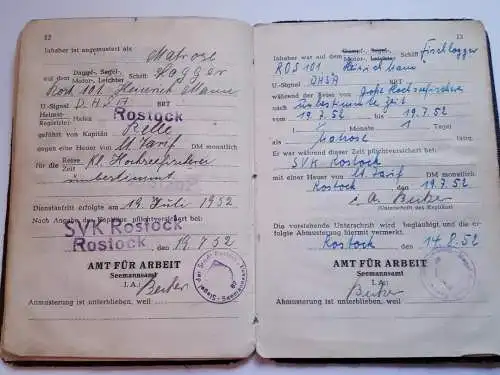 12
Inhaber ist angemustert als
Matrose
auf dem Dampf-, Segel-, Motor-, Leichter Schiff: Logger
Ros 101 Heinrich Mann
U.-Signal DHSA BRT
Heimat-
Registrier- Hafen Rostock
geführt von Kapitän Pelle
gegen eine Heuer von lt. Tarif DM monatlich
für die Reise Zeit Kl. Hochseefischerei
unbestimmt
Dienstantritt erfolgte am 19. Juli 1952
Nach Angabe des Kapitäns pflichtversichert bei:
SVK Rostock
Rostock, den 19.7.52
AMT FÜR ARBEIT
Seemannsamt
I. A.: Becker
Abmusterung ist unterblieben, weil
13
Inhaber war auf dem Dampf-, Segel-, Motor-, Leichter Schiff Fischlogger
ROS 101 Heinrich Mann
U.-Signal DHSA BRT
während der Reise von Große Hochseefischerei
nach unbestimmte Zeit
vom 19.7.52 bis 19.7.52
Monate 1 Tage
als Matrose tätig.
Er war während dieser Zeit pflichtversichert bei:
SVK Rostock
mit einer Heuer von lt. Tarif DM monatlich.
Rostock, den 19.7.52
Becker
(Unterschrift des Kapitäns)
Die vorstehende Unterschrift wird beglaubigt, und die erfolgte Abmusterung hiermit vermerkt.
Rostock, den 14.8.52
AMT FÜR ARBEIT
Seemannsamt
I. A.: Becker
Abmusterung ist unterblieben, weil